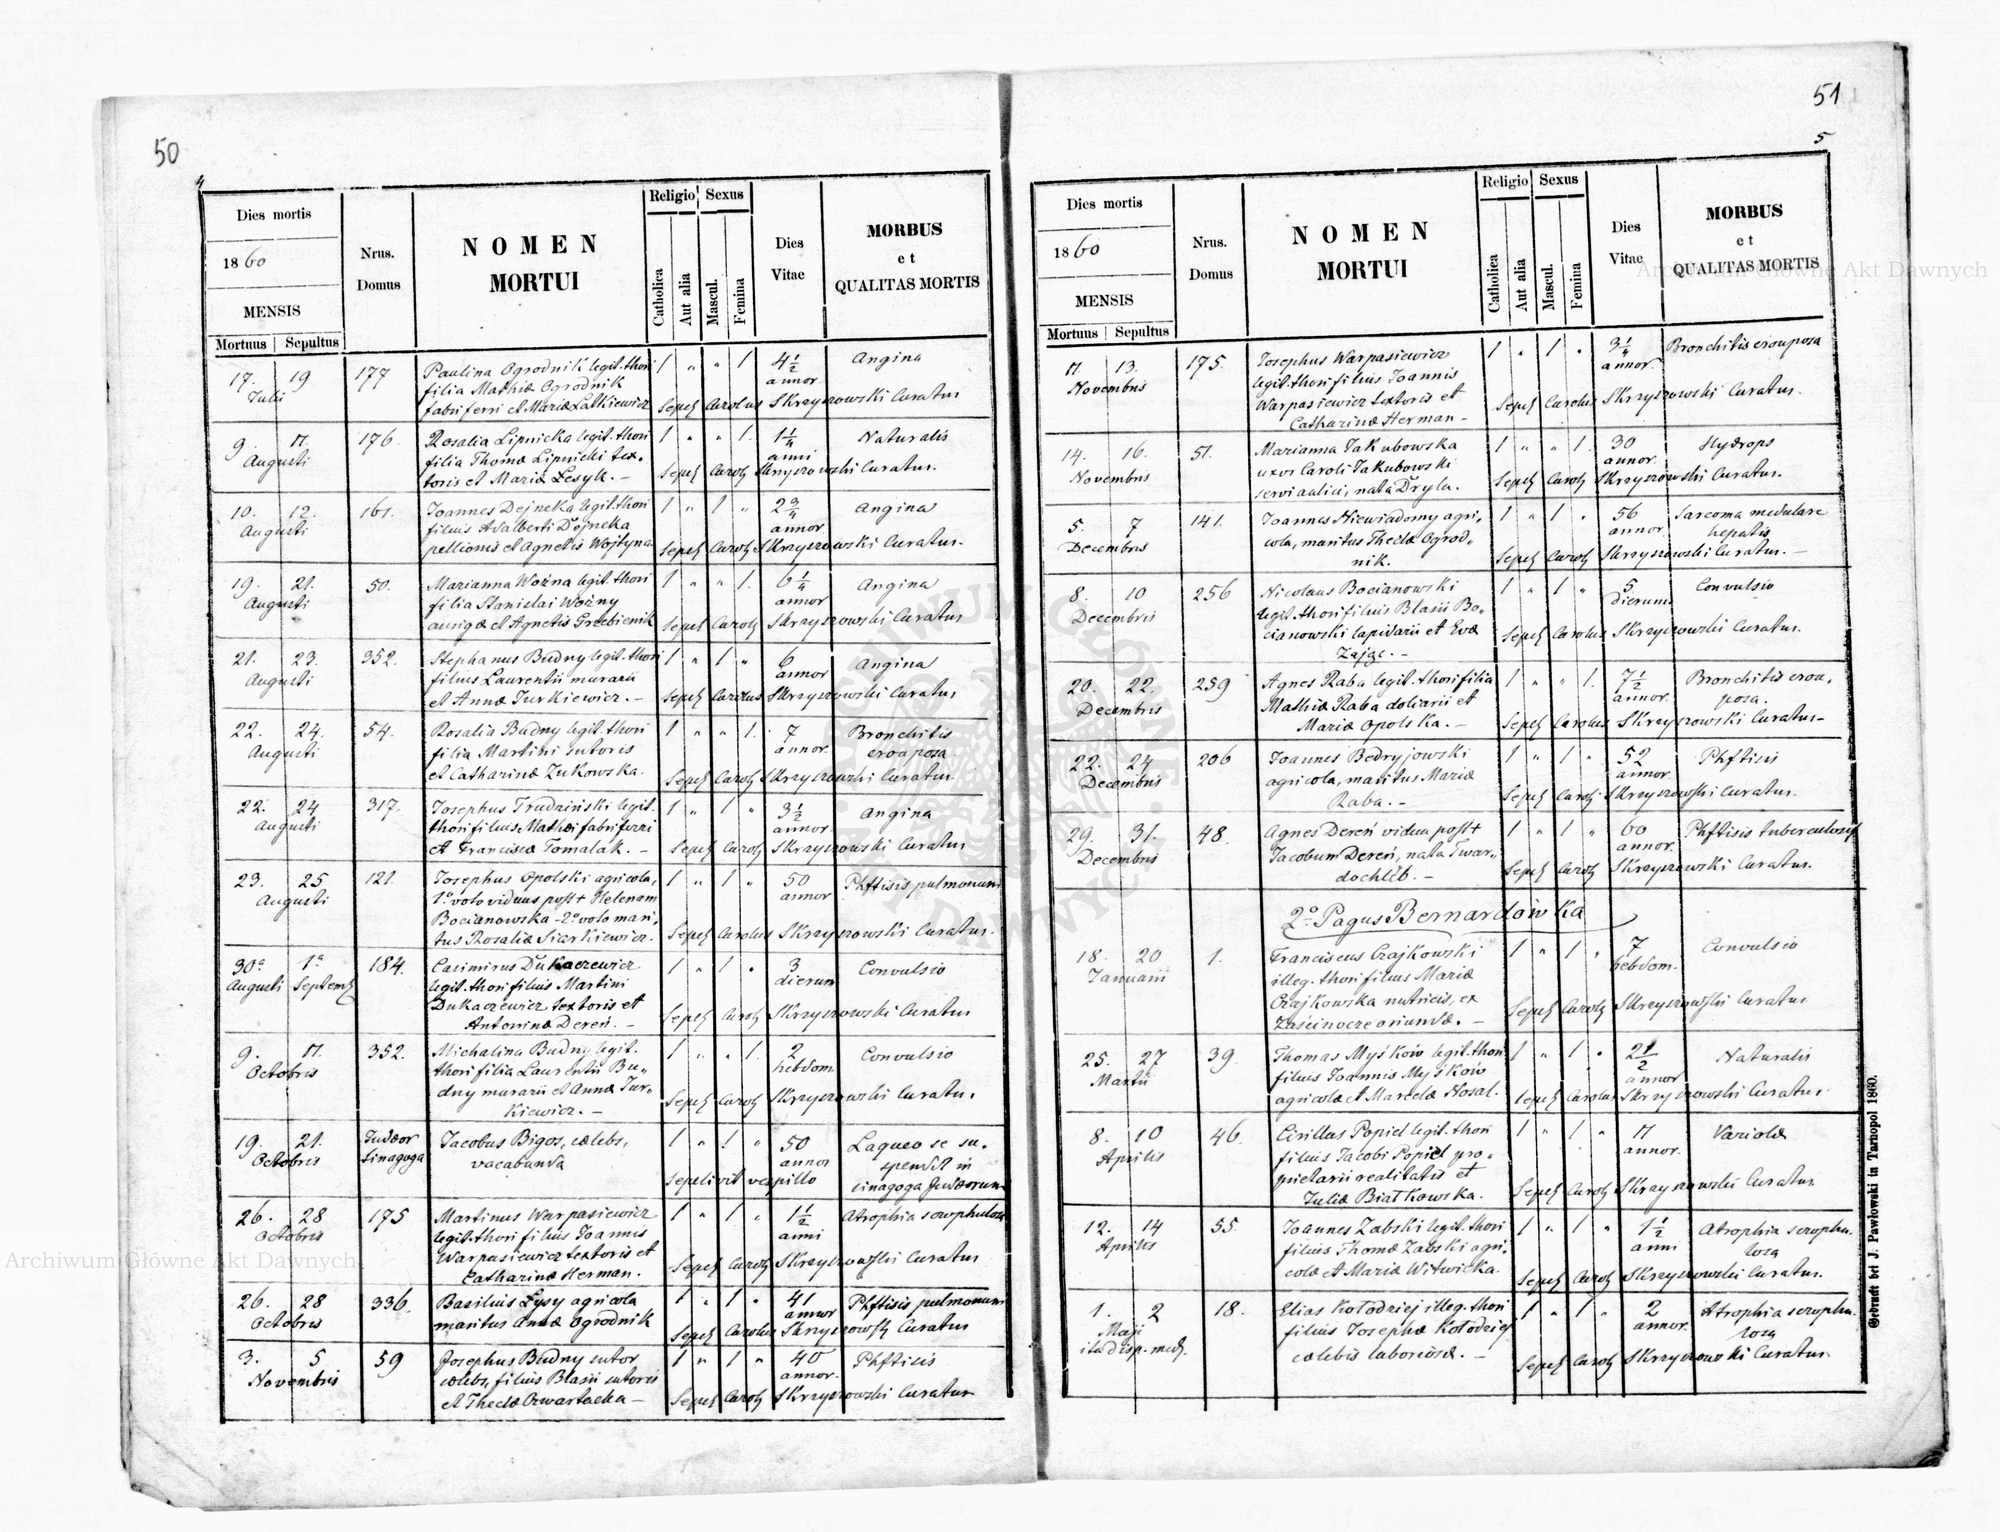 50
4
Dies mortis
1860
MENSIS
Mortuus Sepultus
Nrus. Domus
NOMEN
MORTUI
Religio Sexus
Catholica Aut alia Mascul. Femina
Dies Vitae
MORBUS
et
QUALITAS MORTIS
17. 19 177 Paulina Ogrodnik legit. thori 1 " " 1 4 1/2 Angina
Julii filia Mathiæ Ogrodnik annor
fabri ferri et Mariæ Latkiewicz Sepel Carolus Skrzyszowski Curatus
9. 11. 176. Rosalia Lipnicka legit. thori 1 " " 1. 1 1/4 Naturalis
Augusti filia Thomæ Lipnicki tex- anni
toris et Mariæ Lesyk. – Sepel Carol Skrzyszowski Curatus.
10. 12. 161. Joannes Dejneka legit. thori 1 " 1 " 2 3/4 Angina
Augusti filius Adalberti Dejneka annor
pellionis et Agnetis Wojtyna Sepel Carol Skrzyszowski Curatus.
19. 21. 50. Marianna Woźna legit. thori 1 " " 1. 6 1/4 Angina
Augusti filia Stanislai Woźny annor
aurigæ et Agnetis Grzebienik Sepel Carol Skrzyszowski Curatus
21. 23. 352. Stephanus Budny legit. thori 1 " 1 " 6 Angina
Augusti filius Laurentii murarii annor
et Annæ Jurkiewicz. – Sepel Carolus Skrzyszowski Curatus
22. 24. 54. Rosalia Budny legit. thori 1 " " 1. 7 Bronchitis
Augusti filia Martini sutoris annor crouposa
et Catharinæ Zukowska. Sepel Carol Skrzyszowski Curatus
22. 24 317. Josephus Trudziński legit. 1 " 1 " 3 1/2 Angina
Augusti thori filius Mathæi fabri ferri annor
et Franciscæ Tomalak. – Sepel Carol Skrzyszowski Curatus
23. 25 121. Josephus Opolski agricola, 1 " 1 " 50 Phftisis pulmonum
Augusti 1º voto viduus post + Helenam annor
Bocianowska – 2º voto mari,
tus Rosaliæ Siarkiewicz. Sepel Carolus Skrzyszowski Curatus.
30ª 1ª 184. Casimirus Dukaczewicz 1 " 1 " 3 Convulsio
Augusti Septemb legit. thori filius Martini dierum
Dukaczewicz textoris et
Antoninæ Dereń. – Sepel Carol Skrzyszowski Curatus
9. 11. 352. Michalina Budny legit. 1 " " 1. 2 Convulsio
Octobris thori filia Laurentii Bu- hebdom
dny murarii et Annæ Jur-
kiewicz. – Sepel Carol Skrzyszowski Curatus.
19. 21. Judæor Jacobus Bigos, cælebs, 1 " 1 " 50 Laqueo se su-
Octobris Sinagoga vacabunda annor spendit in
Sepelivit vespillo sinagoga Judæorum
26. 28 175 Martinus Warpasiewicz 1 " 1 " 1 1/2 Atrophia scrophulosa
Octobris legit. thori filius Joannis anni
Warpasiewicz textoris et
Catharinæ Herman. Sepel Carol Skrzyszowski Curatus
26. 28 336. Basilius Łysy agricola 1 " 1 " 41 Phftisis pulmonum
Octobris maritus Annæ Ogrodnik annor
Sepel Carolus Skrzyszowski Curatus
3. 5 59 Josephus Budny sutor 1 " 1 " 40 Phftisis
Novembris cælebs, filius Blasii sutoris annor.
et Theclæ Czwartacka – Sepel Carol Skrzyszowski Curatus
51
5
Dies mortis
1860
MENSIS
Mortuus Sepultus
Nrus. Domus
NOMEN
MORTUI
Religio Sexus
Catholica Aut alia Mascul. Femina
Dies Vitae
MORBUS
et
QUALITAS MORTIS
11. 13. 175. Josephus Warpasiewicz 1 " 1 " 3 1/4 Bronchitis crouposa
Novembris legit. thori filius Joannis annor.
Warpasiewicz textoris et Sepel Carolus Skrzyszowski Curatus.
Catharinæ Herman –
14. 16. 51. Marianna Jakubowska 1 " " 1. 30 Hydrops
Novembris uxor Caroli Jakubowski annor.
servi aulici, nata Dryla. Sepel Carol Skrzyszowski Curatus.
5. 7 141. Joannes Niewiadomy agri, 1 " 1 " 56 Sarcoma medulare
Decembris cola, maritus Theclæ Ogrod, annor hepatis
nik. Sepel Carol Skrzyszowski Curatus. –
8. 10 256 Nicolaus Bocianowski 1 " 1 " 5 Convulsio
Decembris legit. thori filius Blasii Bo, dierum
cianowski lapidarii et Evæ Sepel Carolus Skrzyszowski Curatus.
Zając. –
20. 22. 259 Agnes Raba legit. thori filia 1 " " 1. 7 1/2 Bronchitis crou,
Decembris Mathiæ Raba doliarii et annor. posa.
Mariæ Opolska. – Sepel Carolus Skrzyszowski Curatus –
22. 24 206 Joannes Bedryjowski 1 " 1 " 52 Phftisis
Decembris agricola, maritus Mariæ annor.
Raba. – Sepel Carol Skrzyszowski Curatus.
29. 31. 48. Agnes Dereń vidua post + 1 " 1 " 60 Phftisis tuberculosa
Decembris Jacobum Dereń, nata Twar- annor.
dochléb. – Sepel Carol Skrzyszowski Curatus.
2º Pagus Bernardówka
18. 20 1. Franciscus Czajkowski 1 " 1 " 7 Convulsio
Januarii illeg. thori filius Mariæ hebdom.
Czajkowska nutricis, ex
Zaścinocze oriundæ. – Sepel Carol Skrzyszowski Curatus
25. 27 39. Thomas Myśków legit. thori 1 " 1 " 2 1/2 Naturalis
Martii filius Joannis Myśków annor
agricolæ et Marcelæ Nosal. Sepel Carolus Skrzyszowski Curatus.
8. 10 46. Cirillus Popiel legit. thori 1 " 1 " 11 Variolæ
Aprilis filius Jacobi Popiel pro- annor.
prietarii realitatis et
Juliæ Białkowska. Sepel Carol Skrzyszowski Curatus
12. 14 55. Joannes Zabski legit. thori 1 " 1 " 1 1/2 Atrophia scrophu-
Aprilis filius Thomæ Zabski agri, anni losa
colæ et Mariæ Witwicka. Sepel Carol Skrzyszowski Curatus.
1. 2 18. Elias Kołodziej illeg. thori 1 " 1 " 2 Atrophia scrophu-
Maji filius Josephæ Kołodziej annor. losa
ita disp. med. cælebis laboriosæ. – Sepel Carol Skrzyszowski Curatus.
Gedruckt bei J. Pawłowski in Tarnopol 1860.
Archiwum Główne Akt Dawnych
Archiwum Główne Akt Dawnych
ARCHIWUM GŁÓWNE AKT DAWNYCH